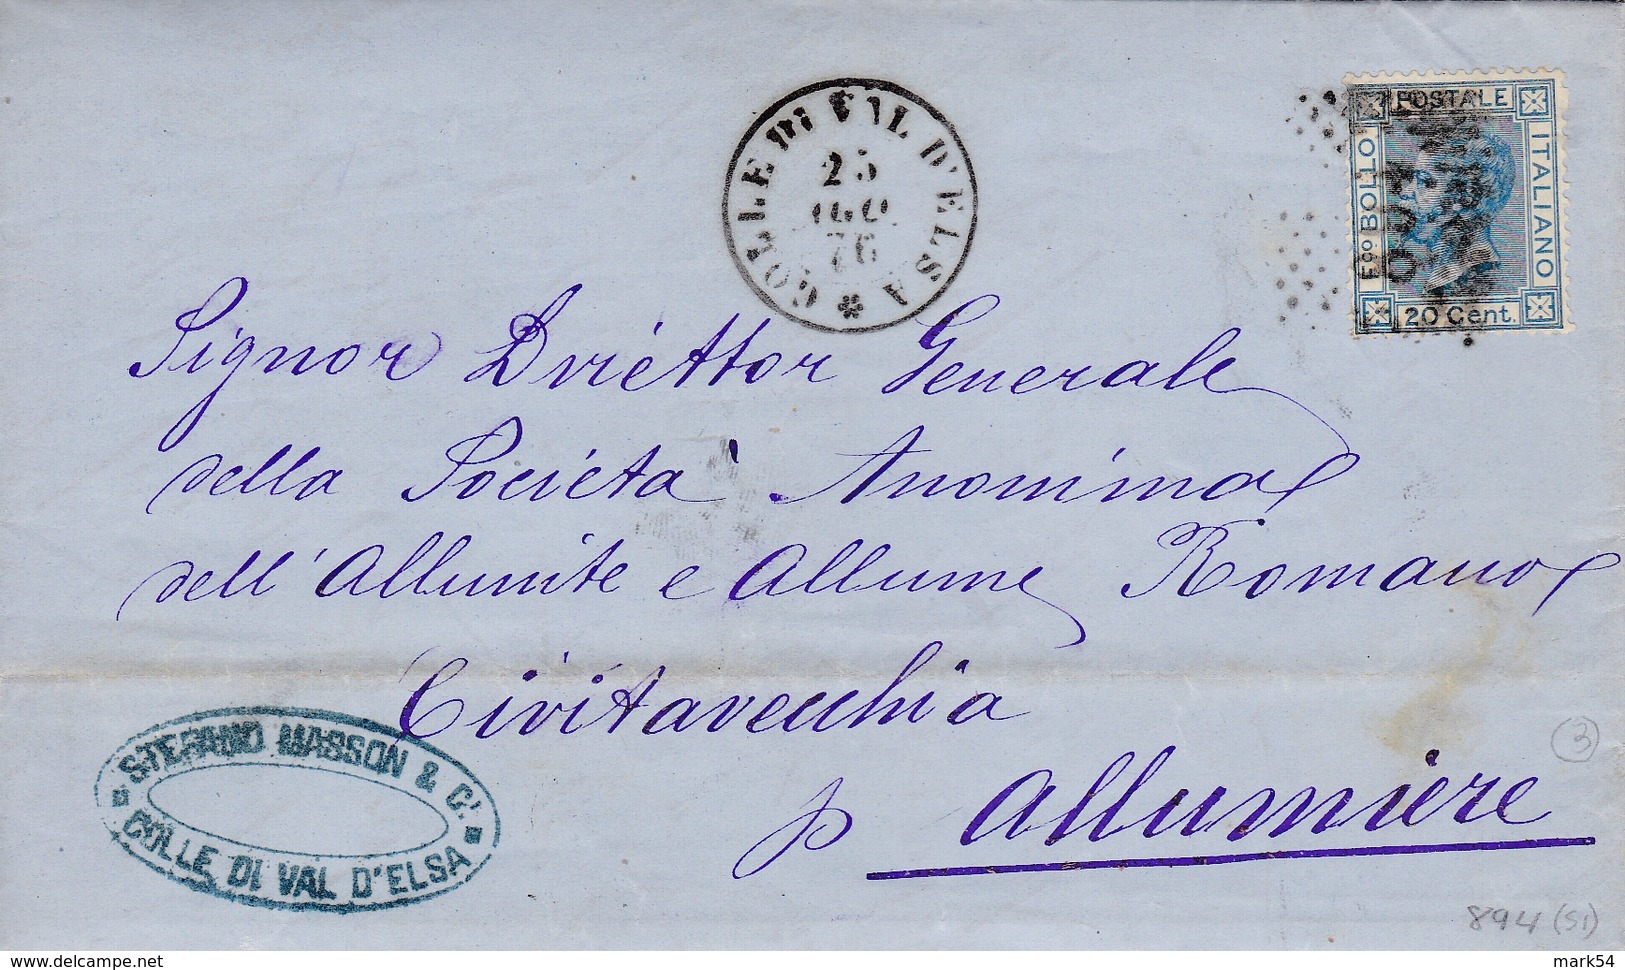 COLLE DI VAL D'ELSA
25
76
POSTALE
ITALIANO
F.co BOLLO
20 Cent.
Signor Diréttor Generale
della Società Anonima
dell'Allunite e Allume Romano
Civitavecchia
p Allumiere
STEFANO MASSON & C.
COLLE DI VAL D'ELSA
3
894 (SI)
www.delcampe.net
mark54